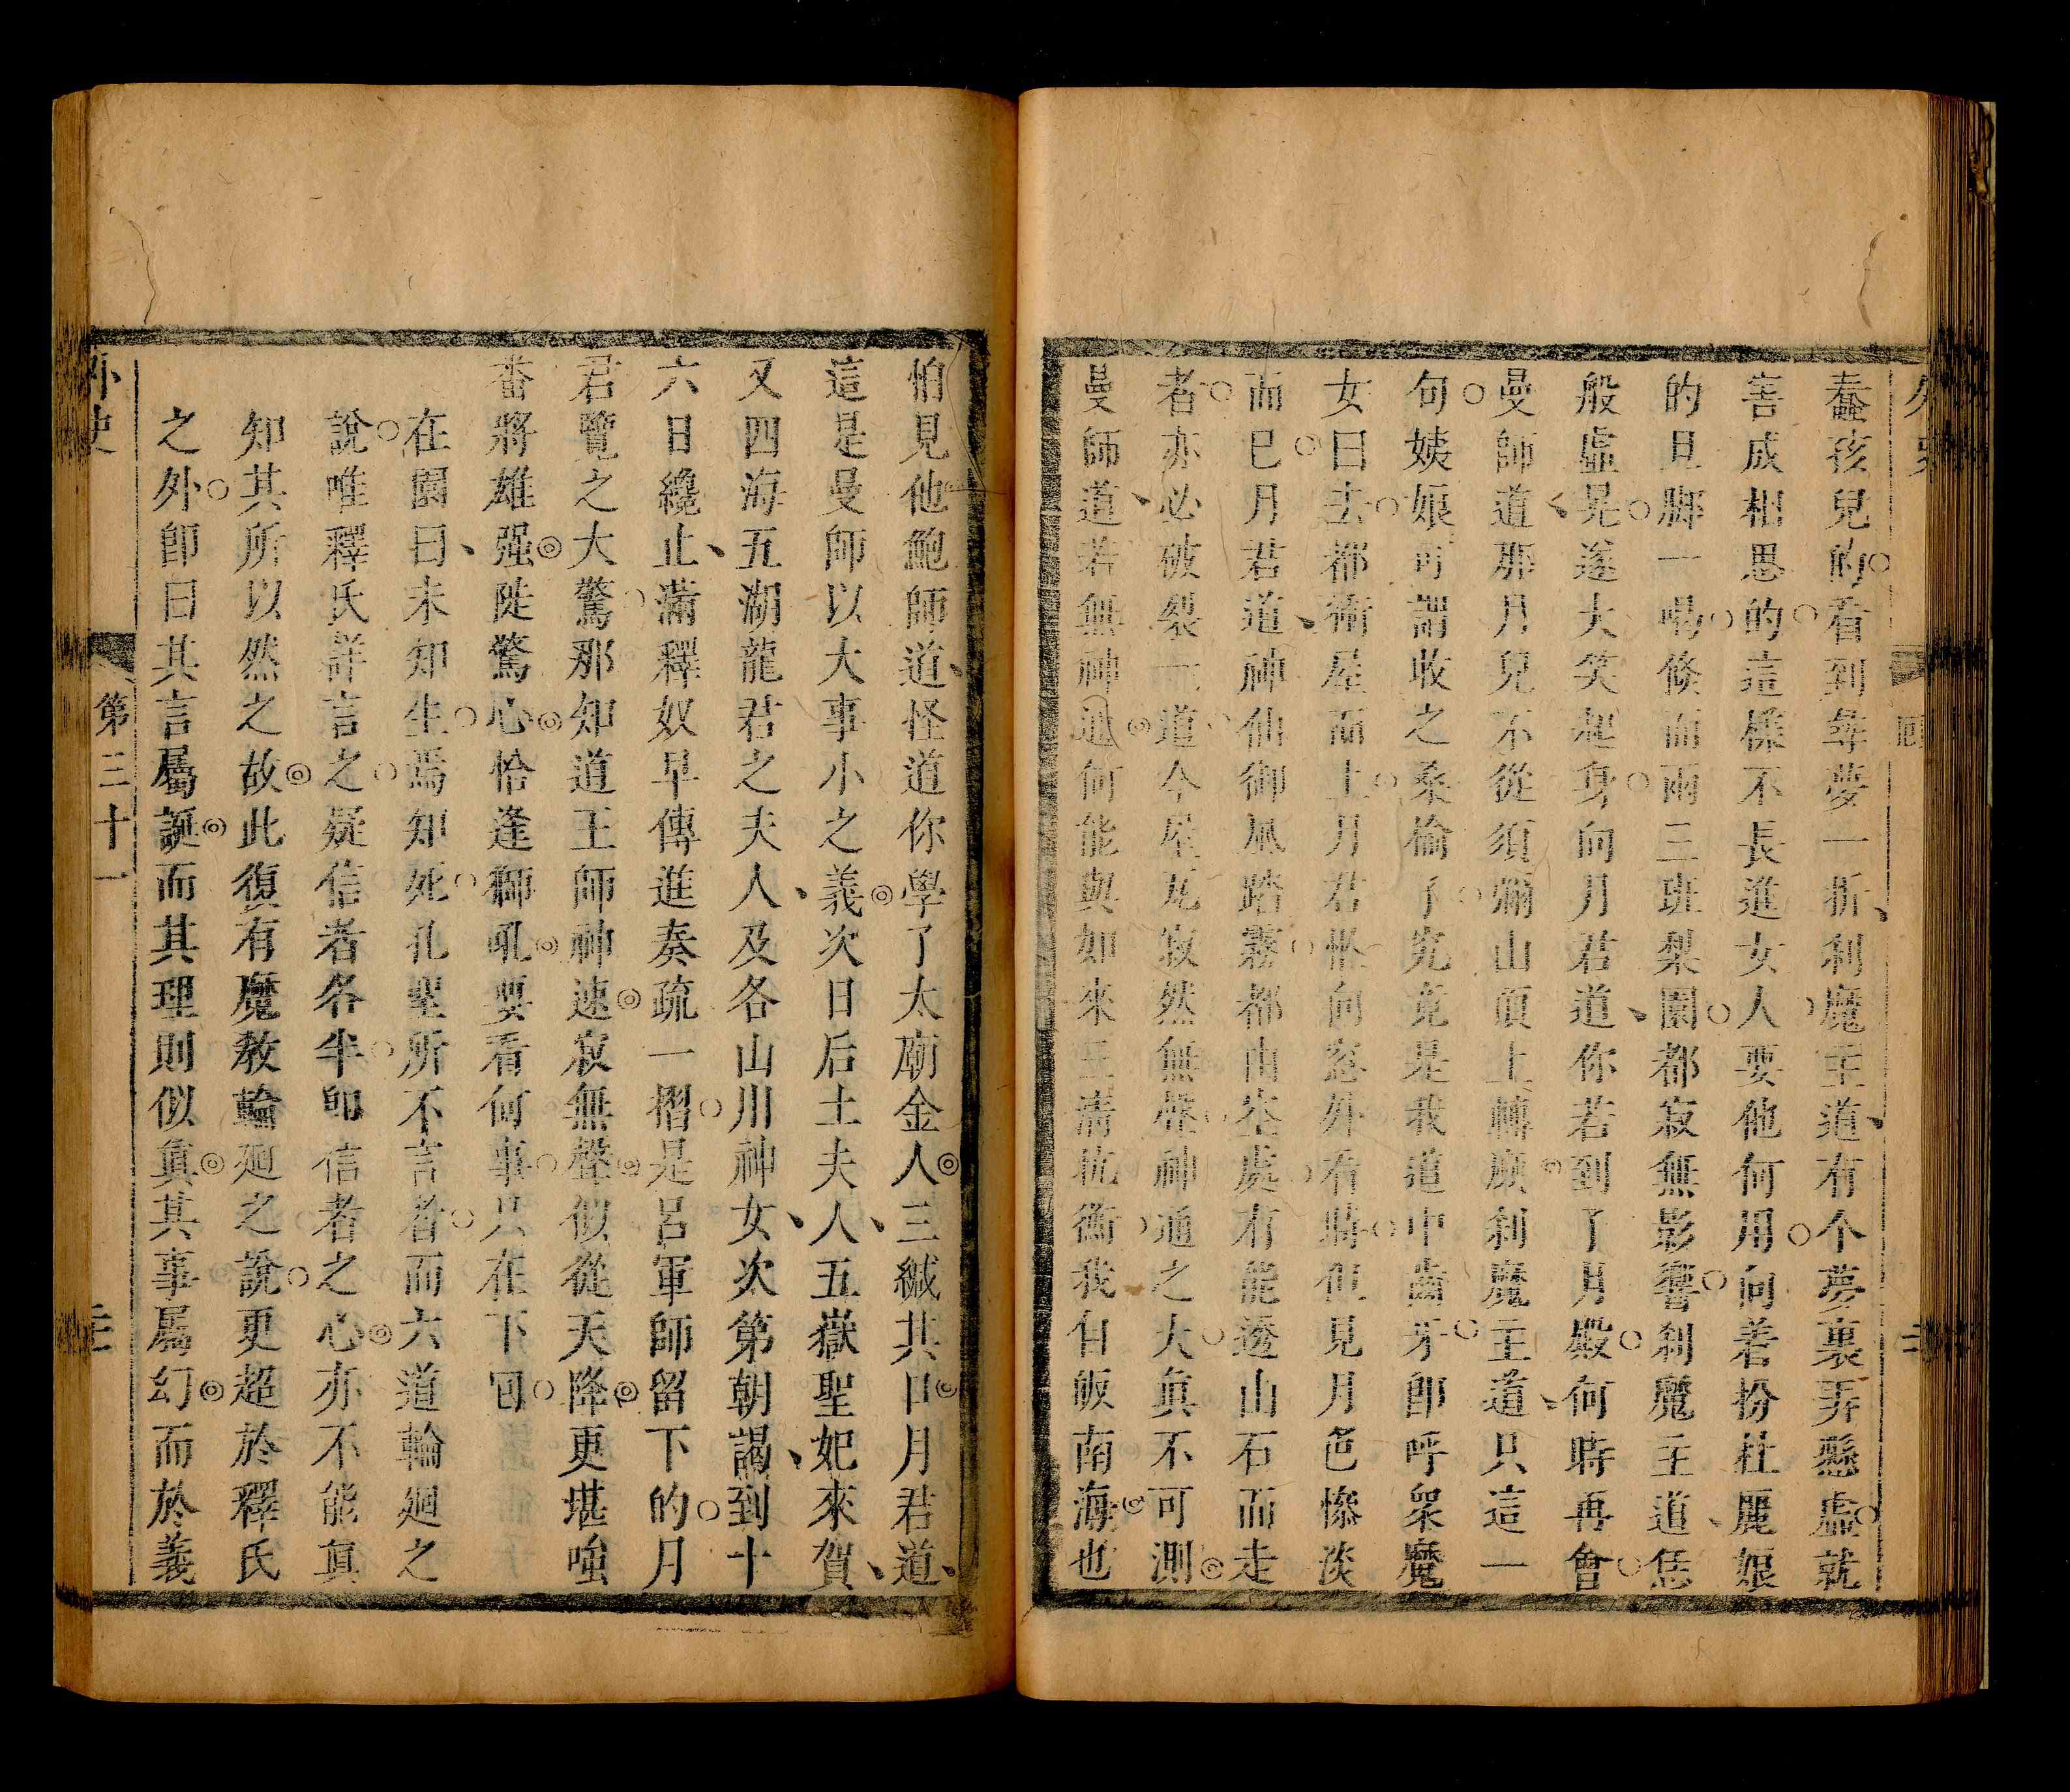 蠢孩兒的看到尋夢一折刹魔主道有个夢裏弄懸虛就
害成相思的這樣不長進女人要他何用向着扮杜麗娘
的旦脚一喝倏而兩三班梨園都寂無影響刹魔主道恁
般虛晃遂大笑起身向月君道你若到了月殿何時再會
曼師道那月兒不從須彌山頂上轉麽刹魔主道只這一
句姨娘可謂收之桑榆了究竟是我道中齒牙卽呼衆魔
女曰去都衝屋而上月君忙向窓外看時但見月色慘淡
而已月君道神仙御風踏霧都由空處有能透山石而走
者亦必破裂一道今屋瓦寂然無聲神通之大眞不可測
曼師道若無神通何能與如來三淸抗衡我自皈南海也
怕見他鮑師道怪道你學了太廟金人三緘其口月君道
這是曼師以大事小之義次日后土夫人五嶽聖妃來賀
又四海五湖龍君之夫人及各山川神女次第朝謁到十
六日纔止滿釋奴早傳進奏疏一摺是呂軍師留下的月
君覽之大驚那知道王師神速寂無聲似從天降更堪嗤
番將雄强陡驚心恰逢獅吼要看何事只在下回
在園曰未知生焉知死孔聖所不言者而六道輪廻之
說唯釋氏詳言之疑信者各半卽信者之心亦不能眞
知其所以然之故此復有魔敎輪廻之說更超於釋氏
之外卽曰其言屬誕而其理則似眞其事屬幻而於義
外史
第三十一